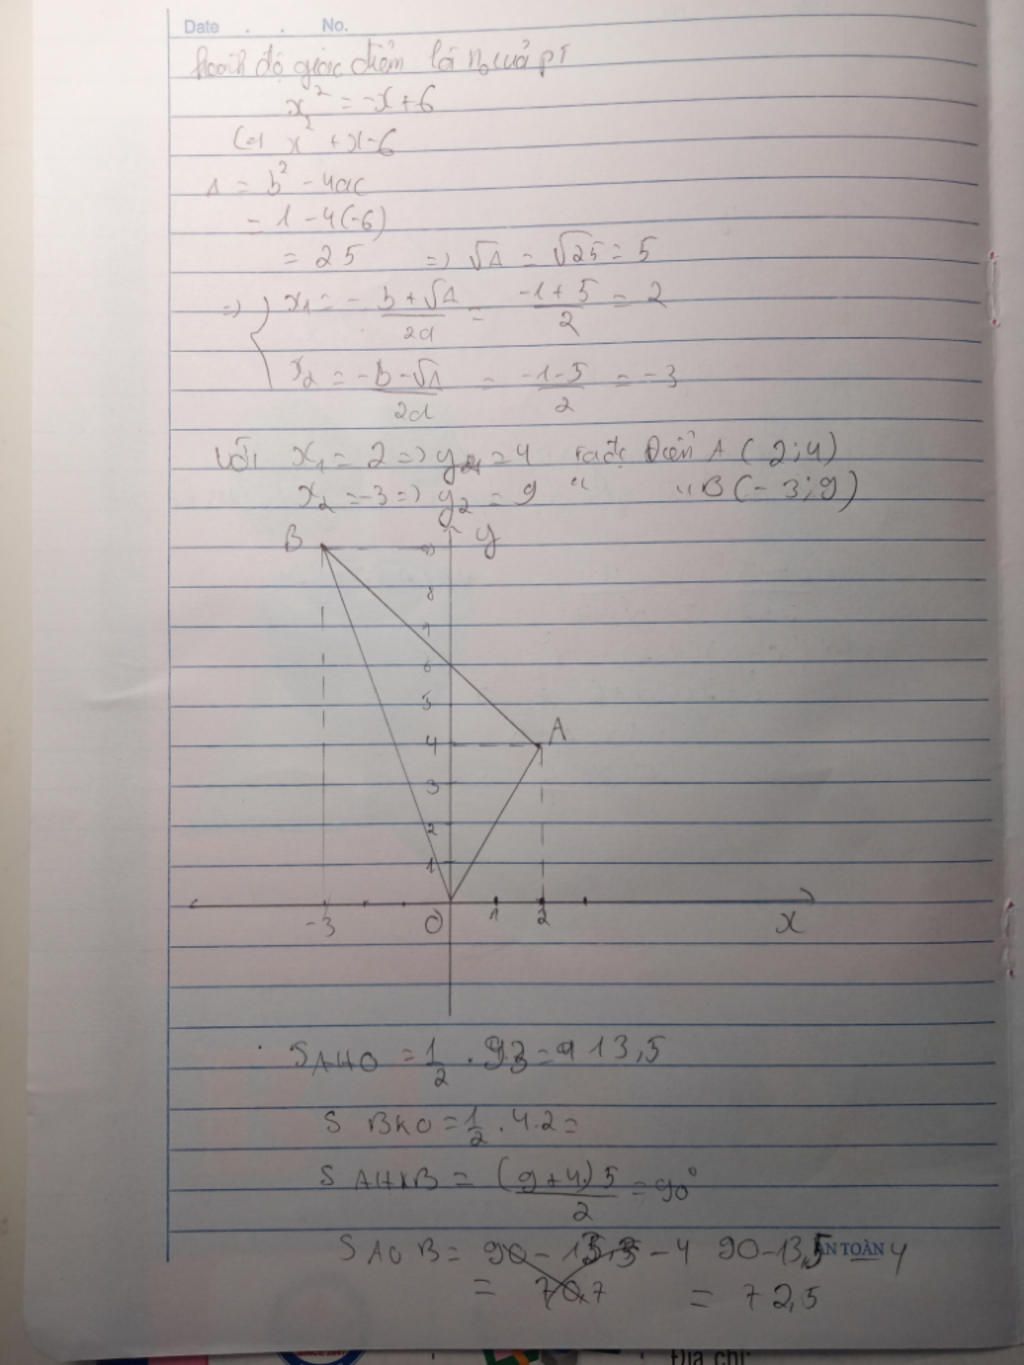 Date . . No.
Hoành độ giao điểm là no của pt
x² = -x+6
(=) x² + x - 6
Δ = b² - 4ac
= 1 - 4(-6)
= 25 => √Δ = √25 = 5
=> x₁ = - b + √Δ / 2a = -1 + 5 / 2 = 2
x₂ = -b - √Δ / 2a = -1 - 5 / 2 = -3
Với x₁ = 2 => y = 4 Điểm A (2;4)
x₂ = -3 => y₂ = 9 " " B (-3;9)
B y
9
8
7
6
5
4 A
3
2
1
-3 O 1 2 x
S AHO = 1/2 . 93 = 13,5
S BKO = 1/2 . 4.2 =
S AHKB = (9+4)5 / 2 = 90°
S AOB = 90 - 13,5 - 4 90-13,5 - 4
AN TOÀN
= 70,7 = 72,5
Địa chỉ: